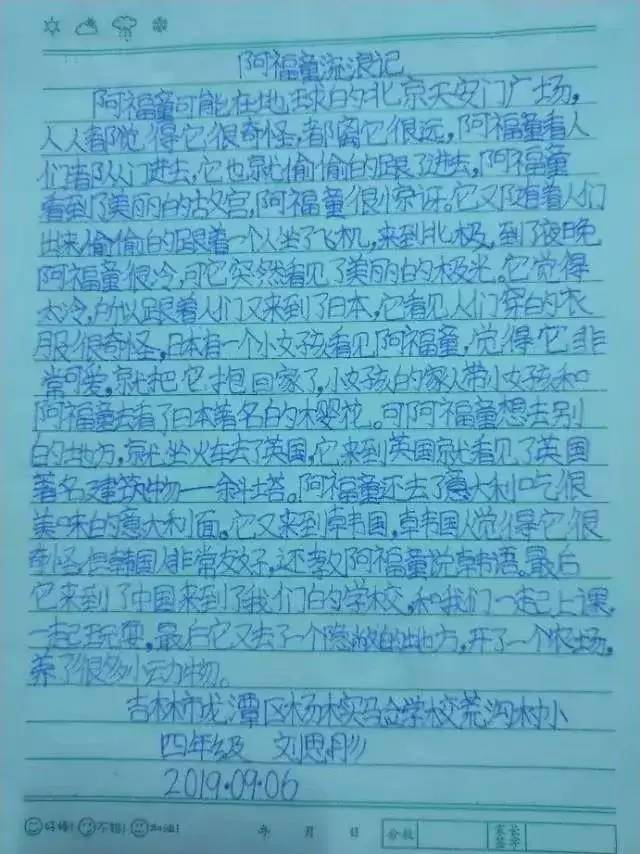 阿福童流浪记
阿福童可能在地球的北京天安门广场,
人人都觉得它很奇怪,都离它很远,阿福童看人
们排队门进去,它也就偷偷的跟了进去,阿福童
看到了美丽的故宫,阿福童很惊讶。它又跟着人们
出来偷偷的跟着一个人坐了飞机,来到北极,到了夜晚
阿福童很冷,可它突然看见了美丽的极光。它觉得
太冷,所以跟着人们又来到了日本,它看见人们穿的衣
服很奇怪,日本有一个小女孩看见阿福童,觉得它非
常可爱,就把它抱回家了,小女孩的家人带小女孩和
阿福童去看了日本著名的木婴花。可阿福童想去别
的地方,就坐火车去了英国,它来到英国就看见了英国
著名建筑物一斜塔。阿福童还去了意大利吃很
美味的意大利面。它又来到韩国,韩国人觉得它很
奇怪,但韩国人非常友好,还教阿福童说韩语。最后
它来到了中国来到了我们的学校,和我们一起上课,
一起玩耍,最后它又去了一个隐敝的地方,开了一个农场,
养了很多小动物。
吉林市龙潭区杨木实验学校荒沟村小
四年级 刘思彤
2019.09.06
好棒! 不错! 加油! 年 月 日 分数 家长签字